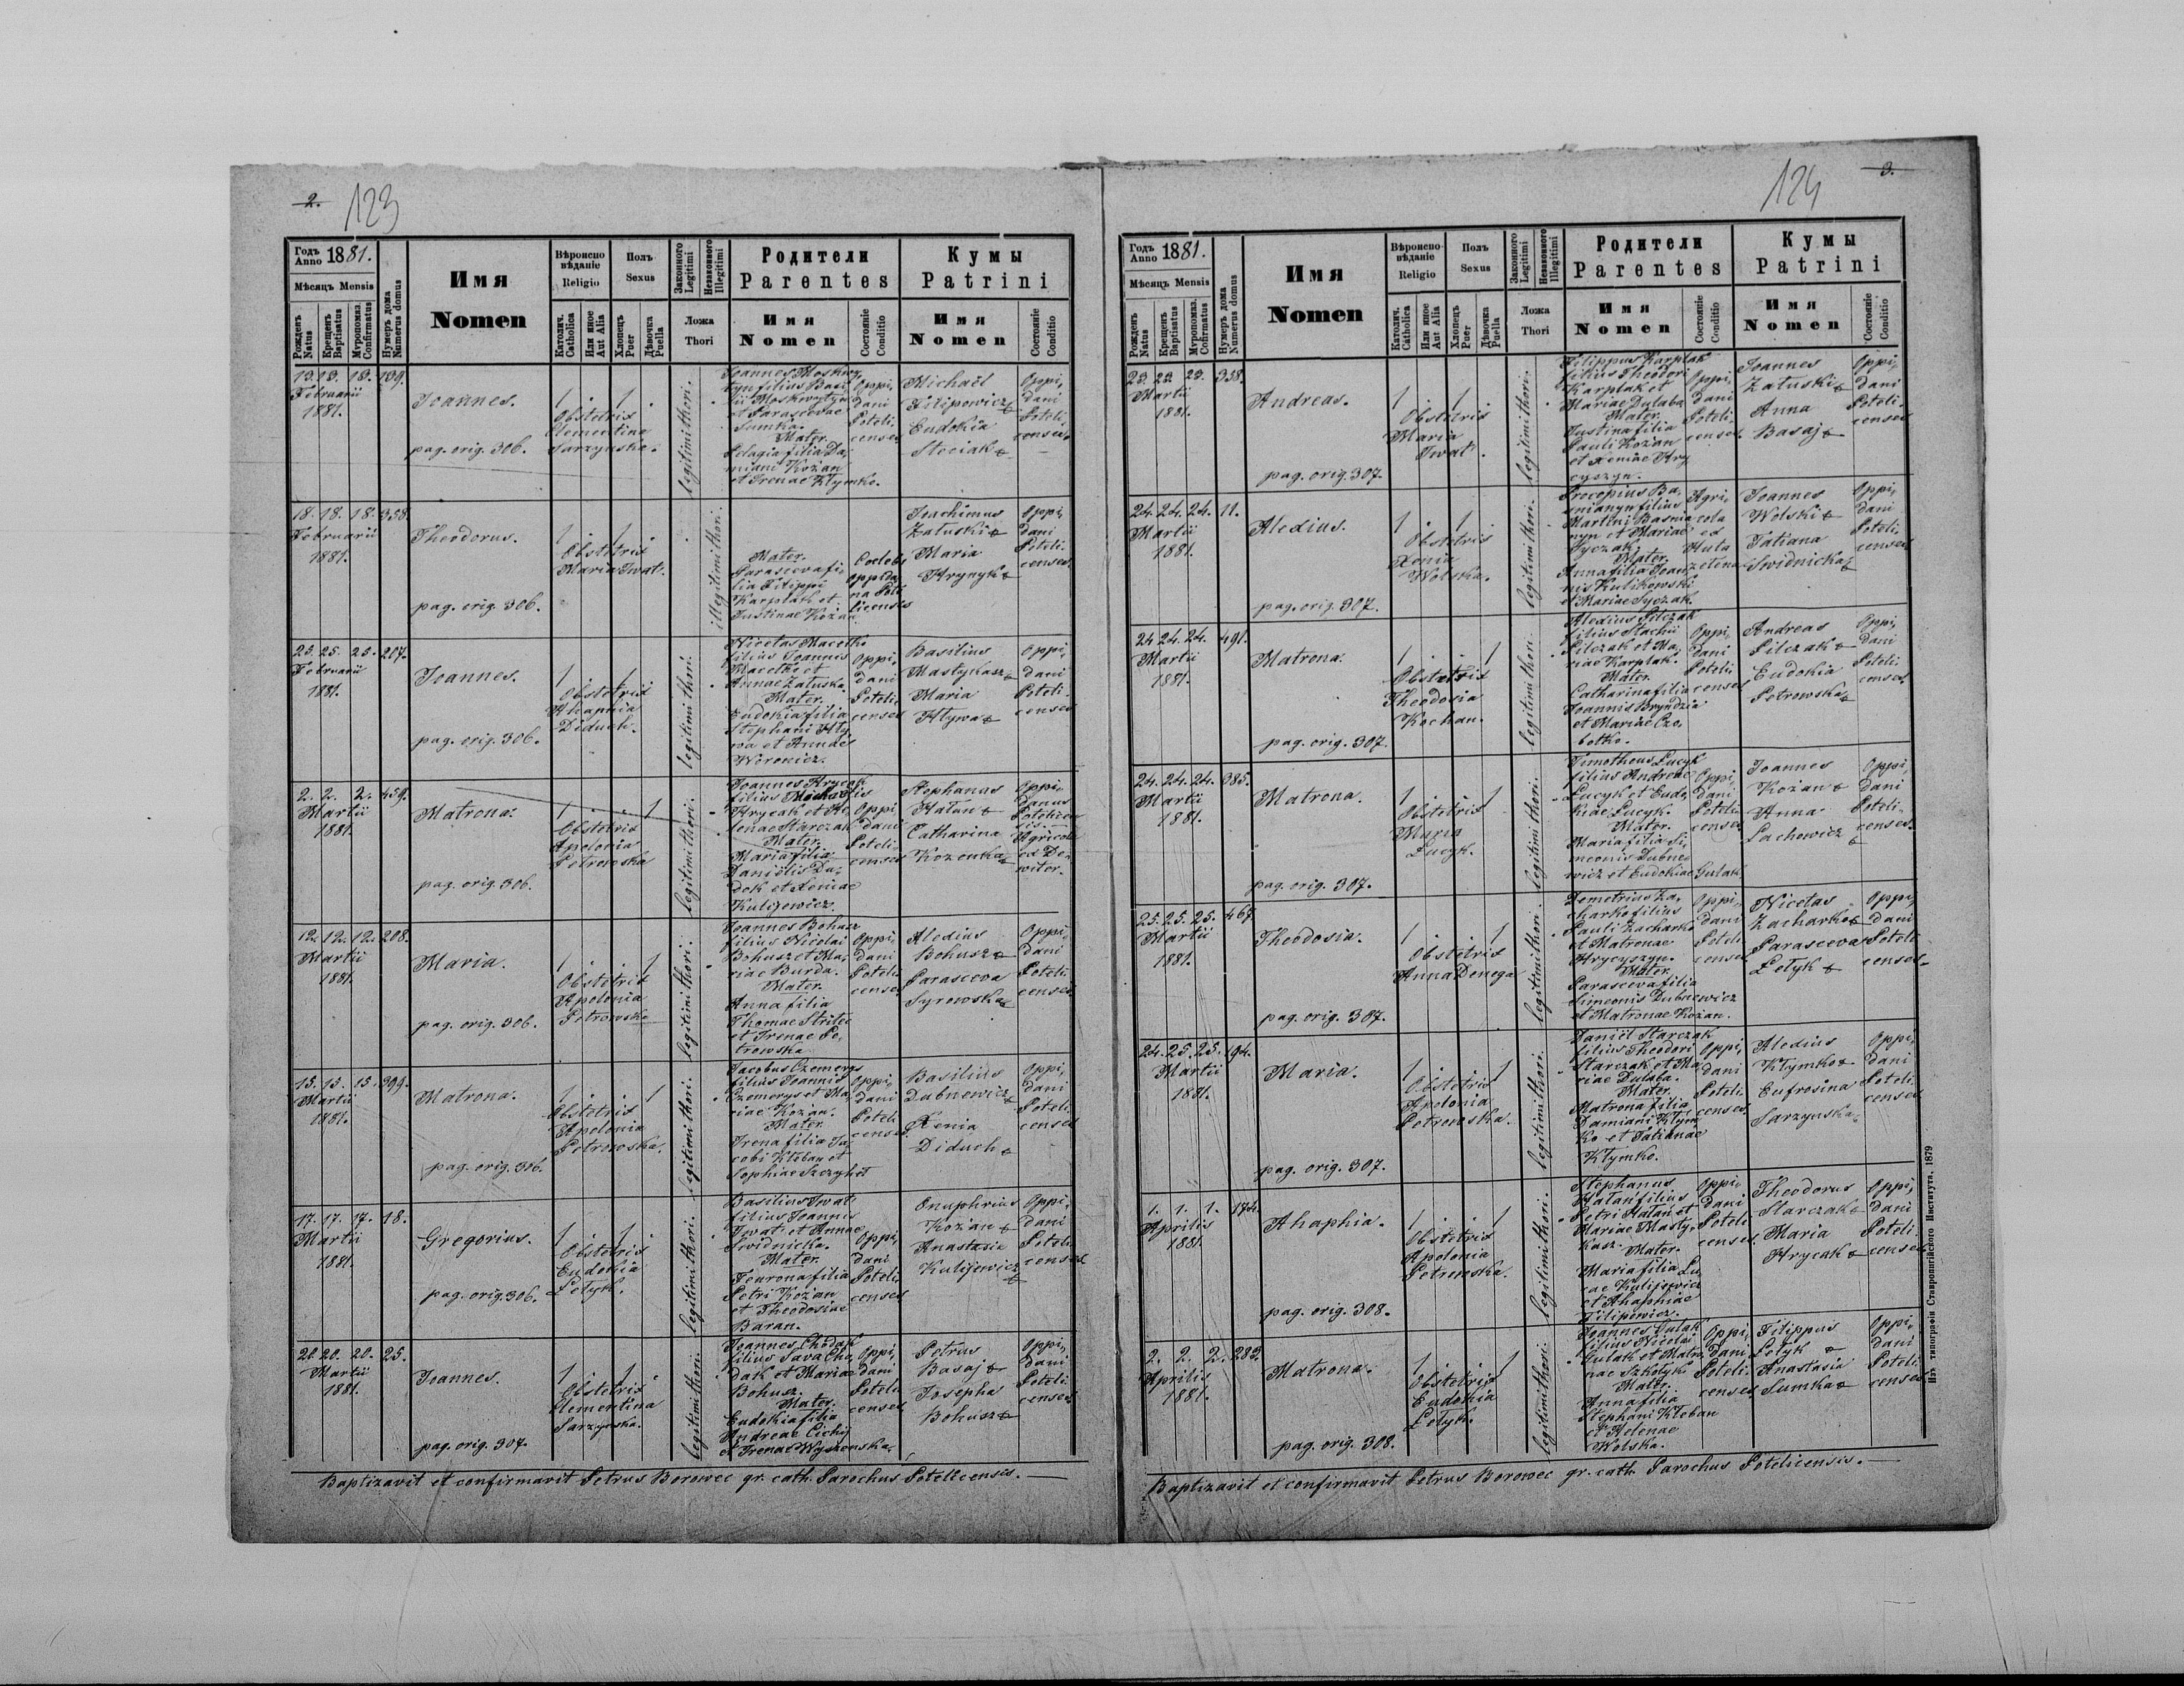 2.
123
Годъ
Anno 1881.
Мѣсяцъ Mensis
Рожденъ
Natus
Крещенъ
Baptisatus
Мѵропомаз.
Confirmatus
Нумеръ дома
Numerus domus
Имя
Nomen
Вѣроиспо
вѣданіе
Religio
Католич.
Catholica
Или иное
Aut Alia
Полъ
Sexus
Хлопецъ
Puer
Дѣвочка
Puella
Законного
Legitimi
Незаконного
Illegitimi
Ложа
Thori
Родители
Parentes
Имя
Nomen
Состояніе
Conditio
Кумы
Patrini
Имя
Nomen
Состояніе
Conditio
13. 13. 13. 139.
Februarii
1881.
Joannes.
pag. orig. 306.
1 . 1 .
Obstetrix
Clementina
Sarzynska.
legitimi thori.
Joannes Moskwy,
tyn filius Basi,
lii Moskwytyn
et Parascevae
Sumka.
Mater.
Pelagia filia Da,
miani Kożan
et Irenae Kłymko.
Oppi,
dani
Poteli,
censes
Michaël
Filipowicz
Eudokia
Steciak
Oppi,
dani
Poteli,
censes.
18. 18. 18. 358.
Februarii
1881.
Theodorus.
pag. orig. 306.
1 . 1 .
Obstetrix
Maria Iwat.
illegitimi thori.
Mater.
Parasceva fi,
lia Filippi
Karplak et
Justinae Kożan.
oppida,
na Pote
licensis
Joachimus
Załuski
Maria
Hrynyk
Oppi,
dani
Poteli,
censes.
25. 25. 25. 207.
Februarii
1881.
Joannes.
pag. orig. 306.
1 . 1 .
Obstetrix
Ahaphia
Diduch.
legitimi thori.
Nicetas Macetko
filius Joannis
Macetko et
Annae Załuska.
Mater.
Eudokia filia
Stephani Hły,
wa et Annae
Woronicz.
Oppi,
dani
Poteli,
censes
Basilius
Mastykasz
Maria
Hływa
Oppi,
dani
Poteli,
censes
2. 2. 2. 459.
Martii
1881.
Matrona.
pag. orig. 306.
1 . . 1
Obstetrix
Apolonia
Petrowska
legitimi thori.
Joannes Hrycak
filius Michaëlis
Hrycak et He,
lenae Starczak
Mater.
Maria filia
Daniëlis Du,
dok et Xeniae
Kulijewicz.
Oppi,
dani
Poteli,
censes
Stephanus
Hałan
Catharina
Kozenka
Oppi,
danus
Potelicen
sis.
Agricola
ex De,
witor.
12. 12. 12. 208.
Martii
1881.
Maria.
pag. orig. 306.
1 . . 1
Obstetrix
Apolonia
Petrowska
legitimi thori.
Joannes Bohusz
filius Nicolai
Bohusz et Ma,
riae Burda.
Mater.
Anna filia
Thomae Strilec
et Irenae Pe,
trowska.
Oppi,
dani
Poteli,
censes
Alexius
Bohusz
Parasceva
Syrowska
Oppi,
dani
Poteli,
censes
15. 15. 15. 399.
Martii
1881.
Matrona.
pag. orig. 306.
1 . . 1
Obstetrix
Apolonia
Petrowska.
legitimi thori.
Jacobus Czemerys
filius Joannis
Czemerys et Ma,
riae Kożan.
Mater.
Irena filia Ja,
cobi Kłeban et
Sophiae Szczyhel
Oppi,
dani
Poteli
censes.
Basilius
Dubnewicz
Xenia
Diduch
Oppi,
dani
Poteli,
censes
17. 17. 17. 18.
Martii
1881.
Gregorius.
pag. orig. 306.
1 . 1 .
Obstetrix
Eudokia
Łetyk.
legitimi thori.
Basilius Iwat
filius Joannis
Iwat et Annae
Swidnicka.
Mater.
Fenrona filia
Petri Kożan
et Theodosiae
Baran.
Oppi,
dani
Poteli,
censes
Onuphrius
Kożan
Anastasia
Kulijewicz
Oppi,
dani
Poteli,
censes
20. 20. 20. 25.
Martii
1881.
Joannes.
pag. orig. 307.
1 . 1 .
Obstetrix
Clementina
Sarzynska.
legitimi thori.
Joannes Chodak
filius Sava Cho,
dak et Mariae
Bohusz.
Mater.
Eudokia filia
Andreae Cichij
et Irenae Wyszenska.
Oppi,
dani
Poteli,
censes
Petrus
Basaj
Josepha
Bohusz
Oppi,
dani
Poteli,
censes
Baptizavit et confirmavit Petrus Borowec gr. cath. Parochus Potelicensis.
124
3.
Годъ
Anno 1881.
Мѣсяцъ Mensis
Рожденъ
Natus
Крещенъ
Baptisatus
Мѵропомаз.
Confirmatus
Нумеръ дома
Numerus domus
Имя
Nomen
Вѣроиспо
вѣданіе
Religio
Католич.
Catholica
Или иное
Aut Alia
Полъ
Sexus
Хлопецъ
Puer
Дѣвочка
Puella
Законного
Legitimi
Незаконного
Illegitimi
Ложа
Thori
Родители
Parentes
Имя
Nomen
Состояніе
Conditio
Кумы
Patrini
Имя
Nomen
Состояніе
Conditio
23. 23. 23. 358.
Martii
1881.
Andreas.
pag. orig. 307.
1 . 1 .
Obstetrix
Maria
Iwat.
legitimi thori.
Filippus Karplak
filius Theodori
Karplak et
Mariae Dulaba
Mater.
Justina filia
Pauli Kożan
et Xeniae Hry
cyszyn.
Oppi,
dani
Poteli,
censes.
Joannes
Załuski
Anna
Basaj
Oppi,
dani
Poteli,
censes
24. 24. 24. 11.
Martii
1881.
Alexius.
pag. orig. 307.
1 . 1 .
Obstetrix
Xenia
Wolska.
legitimi thori.
Procopius Ba,
snianyn filius
Martini Basnia
nyn et Mariae
Syczak.
Mater.
Anna filia Joan,
nis Kulikowski
et Mariae Syczak.
Agri,
cola
ex
Huta
zelena
Joannes
Wolski
Tatiana
Swidnicka
Oppi,
dani
Poteli,
censes
24. 24. 24. 491.
Martii
1881.
Matrona.
pag. orig. 307.
1 . . 1
Obstetrix
Theodosia
Kochan.
legitimi thori.
Alexius Pilczak
filius Stachii
Pilczak et Ma,
riae Karplak.
Mater.
Catharina filia
Joannis Bryndzia
et Mariae Czo,
botko.
Oppi,
dani
Poteli,
censes
Andreas
Pilczak
Eudokia
Petrowska
Oppi,
dani
Poteli,
censes.
24. 24. 24. 385.
Martii
1881.
Matrona.
pag. orig. 307.
1 . . 1
Obstetrix
Maria
Łucyk.
legitimi thori.
Timotheus Łucyk
filius Andreae
Łucyk et Eudo,
kiae Łucyk.
Mater.
Maria filia Si,
meonis Dubne
wicz et Eudokiae Gulak
Oppi,
dani
Poteli,
censes.
Joannes
Kożan
Anna
Lachowicz
Oppi,
dani
Poteli,
censes.
25. 25. 25. 467.
Martii
1881.
Theodosia.
pag. orig. 307.
1 . . 1
Obstetrix
Anna Denega
legitimi thori.
Demetrius Za,
charko filius
Pauli Zacharko
et Matronae
Hrycyszyn.
Mater.
Parasceva filia
Simeonis Dubnewicz
et Matronae Kożan.
Oppi,
dani
Poteli,
censes
Nicetas
Zacharko
Parasceva
Łetyk
Oppi,
dani
Poteli,
censes.
24. 25. 25. 194.
Martii
1881.
Maria.
pag. orig. 307.
1 . . 1
Obstetrix
Apolonia
Petrowska.
legitimi thori.
Daniël Starczak
filius Theodori
Starczak et Ma,
riae Dulaba.
Mater.
Matrona filia
Damiani Kłym,
ko et Tatianae
Kłymko.
Oppi,
dani
Poteli,
censes.
Alexius
Kłymko
Eufrosina
Sarzynska
Oppi,
dani
Poteli,
censes
1. 1. 1. 174.
Aprilis
1881.
Ahaphia.
pag. orig. 308.
1 . . 1
Obstetrix
Apolonia
Petrowska.
legitimi thori.
Stephanus
Hałan filius
Petri Hałan et
Mariae Masty,
kasz.
Mater.
Maria filia Lu,
cae Kulijewicz
et Ahaphiae
Filipowicz.
Oppi,
dani
Poteli,
censes.
Theodorus
Starczak
Maria
Hrycak
Oppi,
dani
Poteli,
censes
2. 2. 2. 283.
Aprilis
1881.
Matrona.
pag. orig. 308.
1 . . 1
Obstetrix
Eudokia
Łetyk.
legitimi thori.
Joannes Gulak
filius Nicolai
Gulak et Matro,
nae Szkołyk
Mater.
Anna filia
Stephani Kłeban
et Helenae
Wolska.
Oppi,
dani
Poteli,
censes
Filippus
Łetyk
Anastasia
Sumka
Oppi,
dani
Poteli,
censes
Baptizavit et confirmavit Petrus Borowec gr. cath. Parochus Potelicensis.
Изъ типографіи Ставропигійского Института. 1879